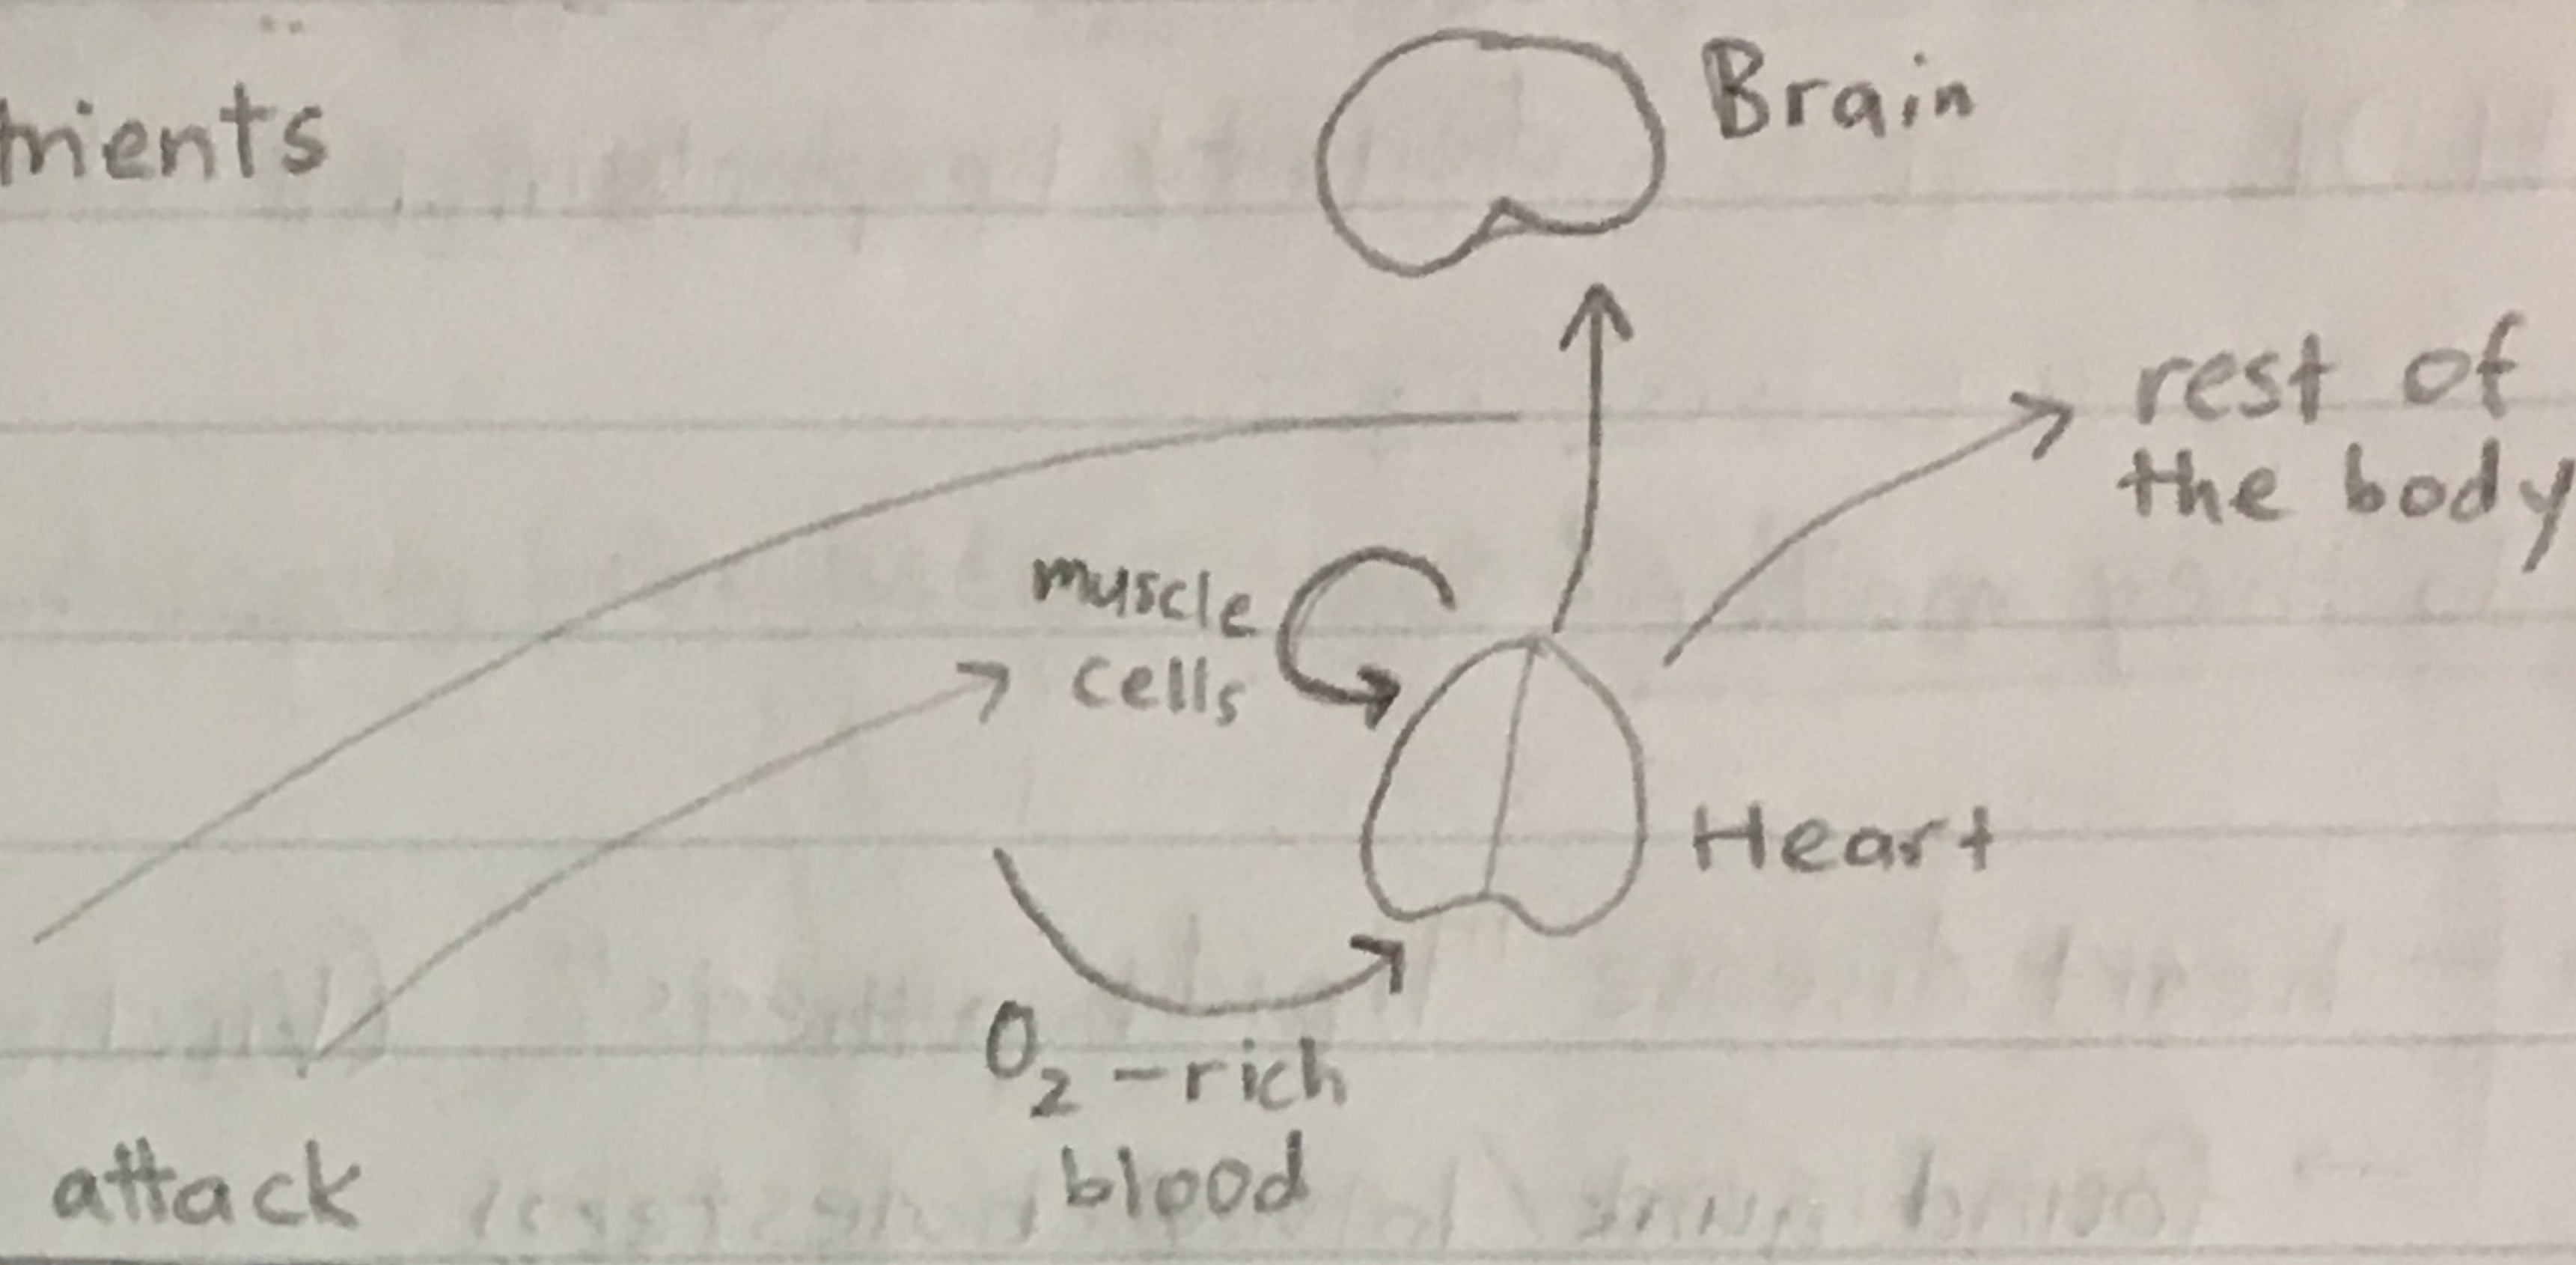 Brain
rest of
the body
muscle
cells
Heart
O₂-rich
blood
attack